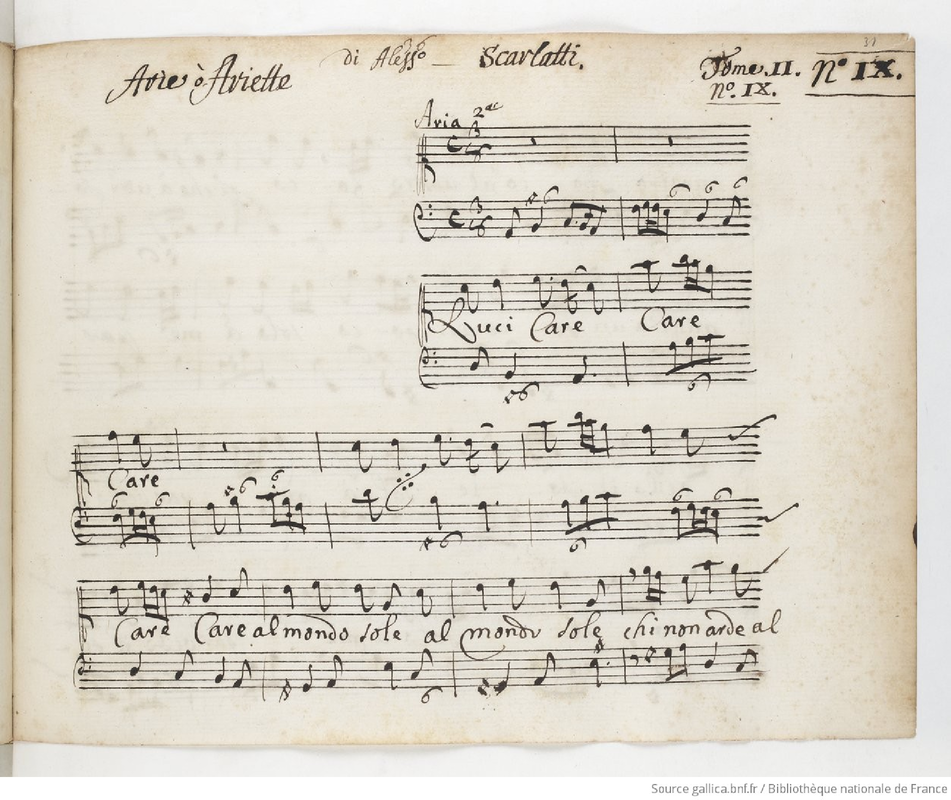 31
Arie ò Ariette di Aless.o Scarlatti. Tome. II. nº IX.
Nº. IX.
Aria 2.da
Luci Care Care
Care
Care Care al mondo sole al mondo sole chi non arde al
Source gallica.bnf.fr / Bibliothèque nationale de France